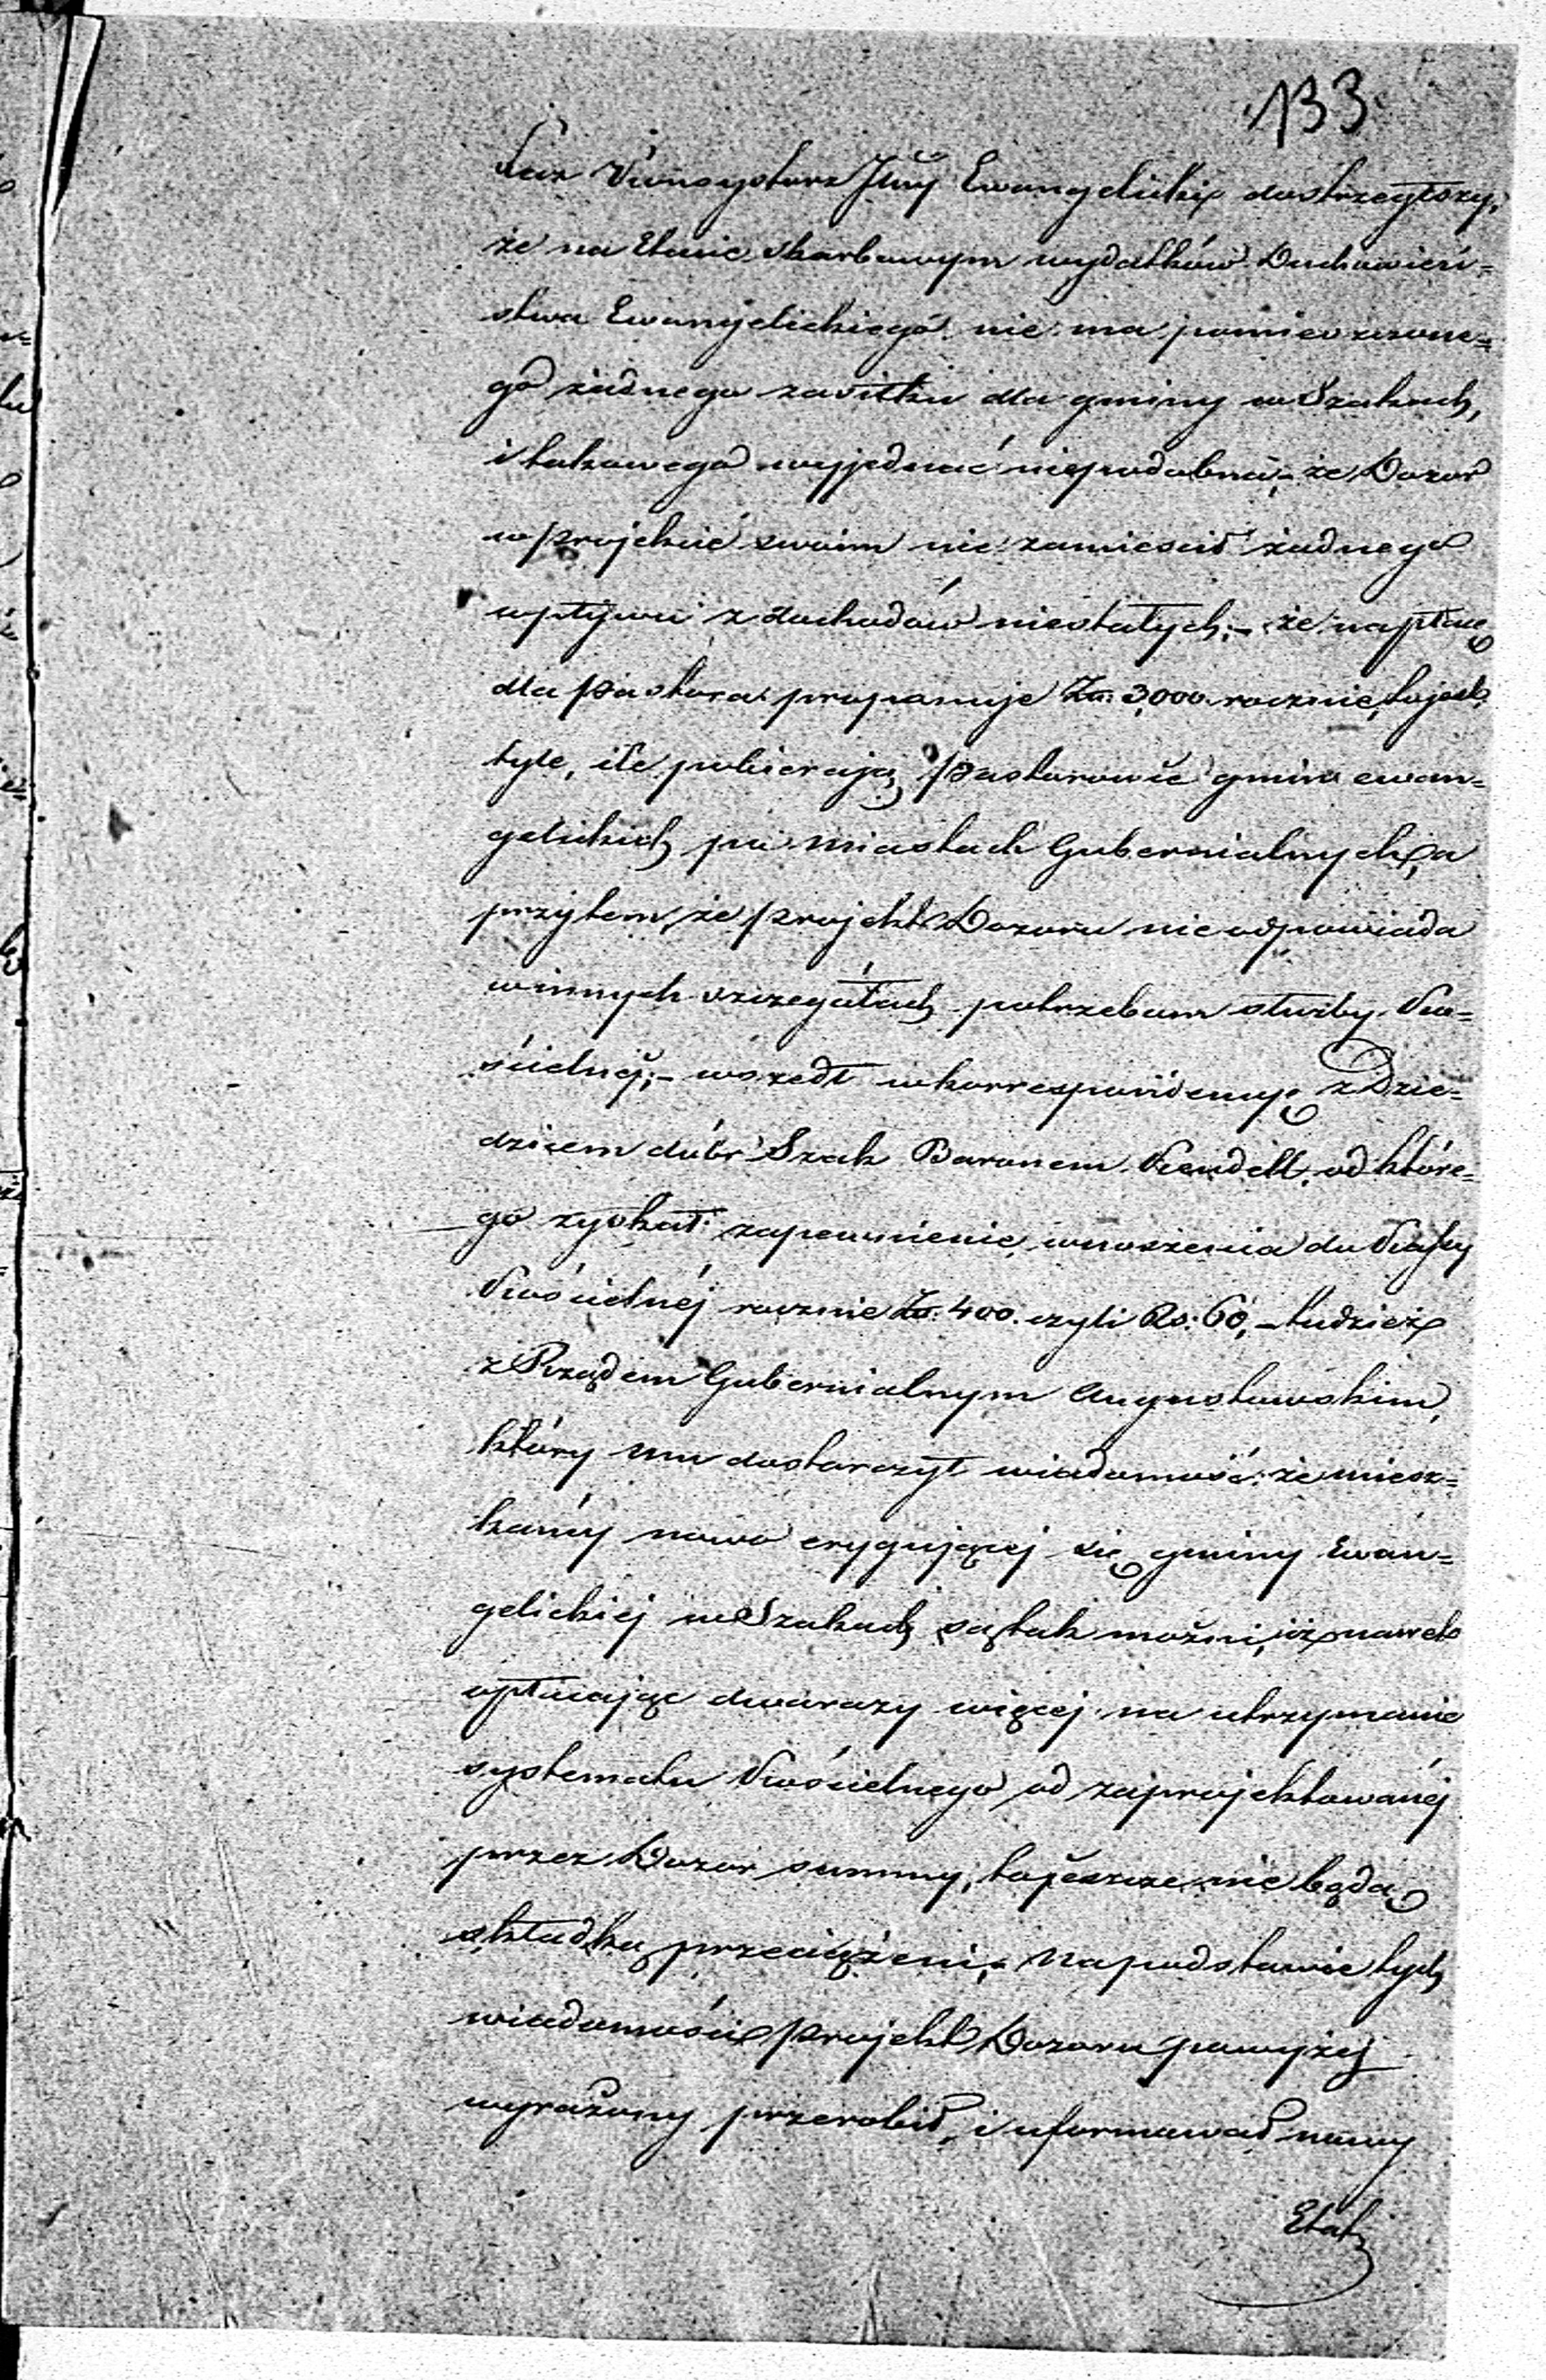 133
Lecz Konsystorz Jlny Ewangelicki dostrzegłszy,
że na Etacie skarbowym wydatków Duchowień=
stwa Ewangelickiego nie ma pomieszczone=
go żadnego zasiłku dla gminy w Szakach,
i takowego wyjednać niepodobna;- że Dozór
w projekcie swoim nie zamieścił żadnego
wpływu z dochodów niestałych;- że na płacę
dla Pastora proponuje Zł: 3,000 rocznie, to jest:
tyle, ile pobierają Pastorowie gmin ewan=
gelickich po miastach Gubernialnych, a
przytem, że projekt Dozoru nie odpowiada
w innych szczegółach potrzebom służby Ko=
ścielnéj;- wszedł w korrespondencyę z Dzie=
dzicem dóbr Szak Baronem Keudell, od które=
go zyskał zapewnienie wnoszenia do Kassy
Kościelnéj rocznie Zł: 400. czyli Rs: 60,- tudzież
z Rządem Gubernialnym Augustowskim,
który mu dostarczył wiadomość: że miesz=
kańcy nowo erygującéj się gminy Ewan=
gelickiéj w Szakach, są tak możni, iż nawet
opłacając dwa razy więcéj na utrzymanie
systematu Kościelnego od zaprojektowanéj
przez Dozór summy, to jeszcze nie będą
składką przeciążeni;- Na podstawie tych
wiadomości projekt Dozoru powyżéj
wyrażony przerobił, i uformował nowy
Etat